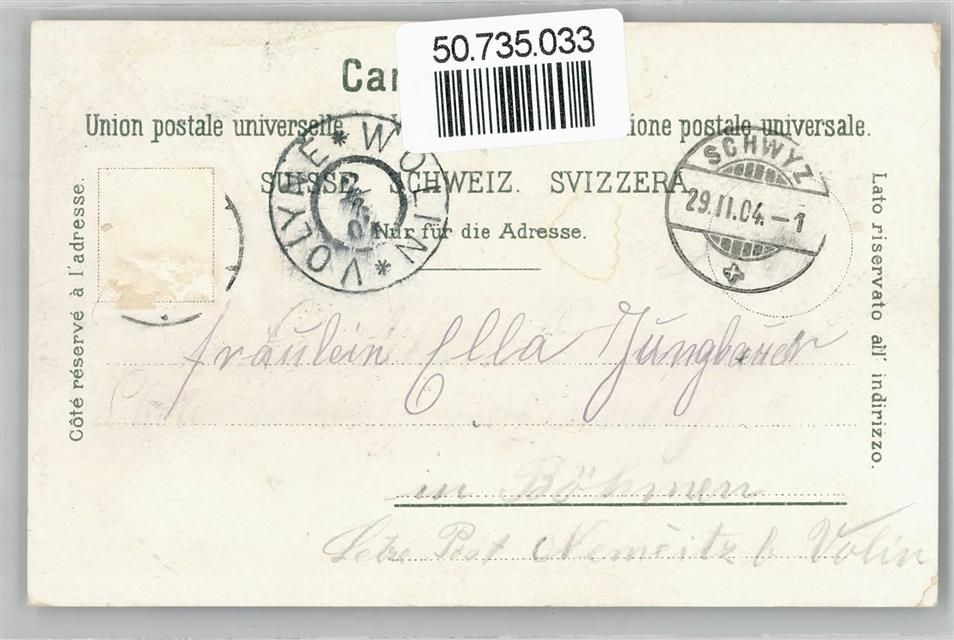 50.735.033
Car
Union postale universelle. ione postale universale.
SUISSE. SCHWEIZ. SVIZZERA.
Nur für die Adresse.
Côté réservé à l'adresse.
Lato riservato all' indirizzo.
WOLIN * VOLYNE *
SCHWYZ
29.II.04.–1
Fräulein Ella Jungbauer
in Böhmen
Letze Post Nemčitz b Volin